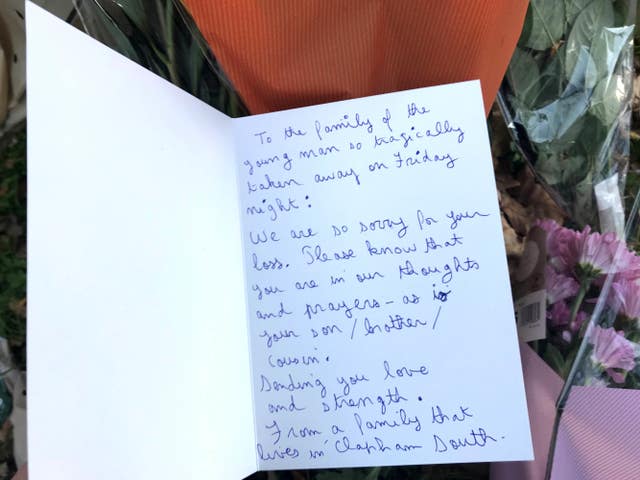 To the family of the
young man so tragically
taken away on Friday
night:
We are so sorry for your
loss. Please know that
you are in our thoughts
and prayers - as is
your son / brother /
cousin.
Sending you love
and strength.
From a family that
lives in Clapham South.